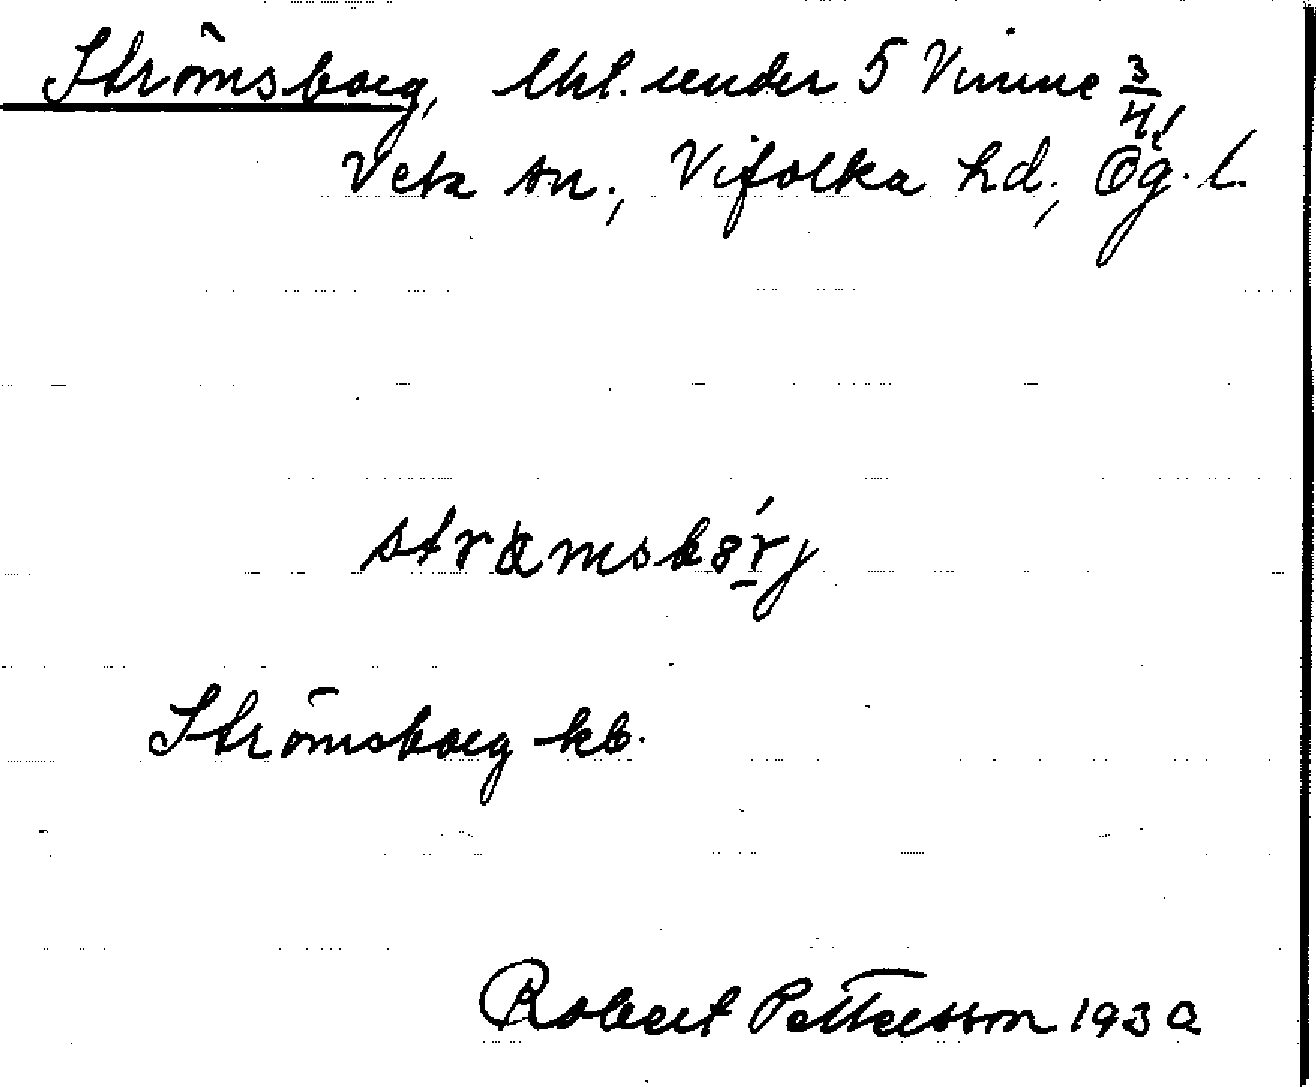 Strömsborg, lht. under 5 Vinne 3/4,
Veta sn., Vifolka hd., Ög. l.
stræmsbȯrj
Strömsborg kb.
Robert Pettersson 1930